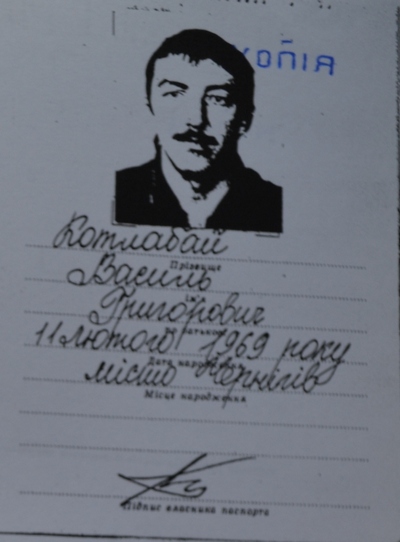 КОПІЯ
Котлабай
Прізвище
Василь
Ім'я
Григорович
по батькові
11 лютого 1969 року
Дата народження
місто Чернігів
Місце народження
Підпис власника паспорта